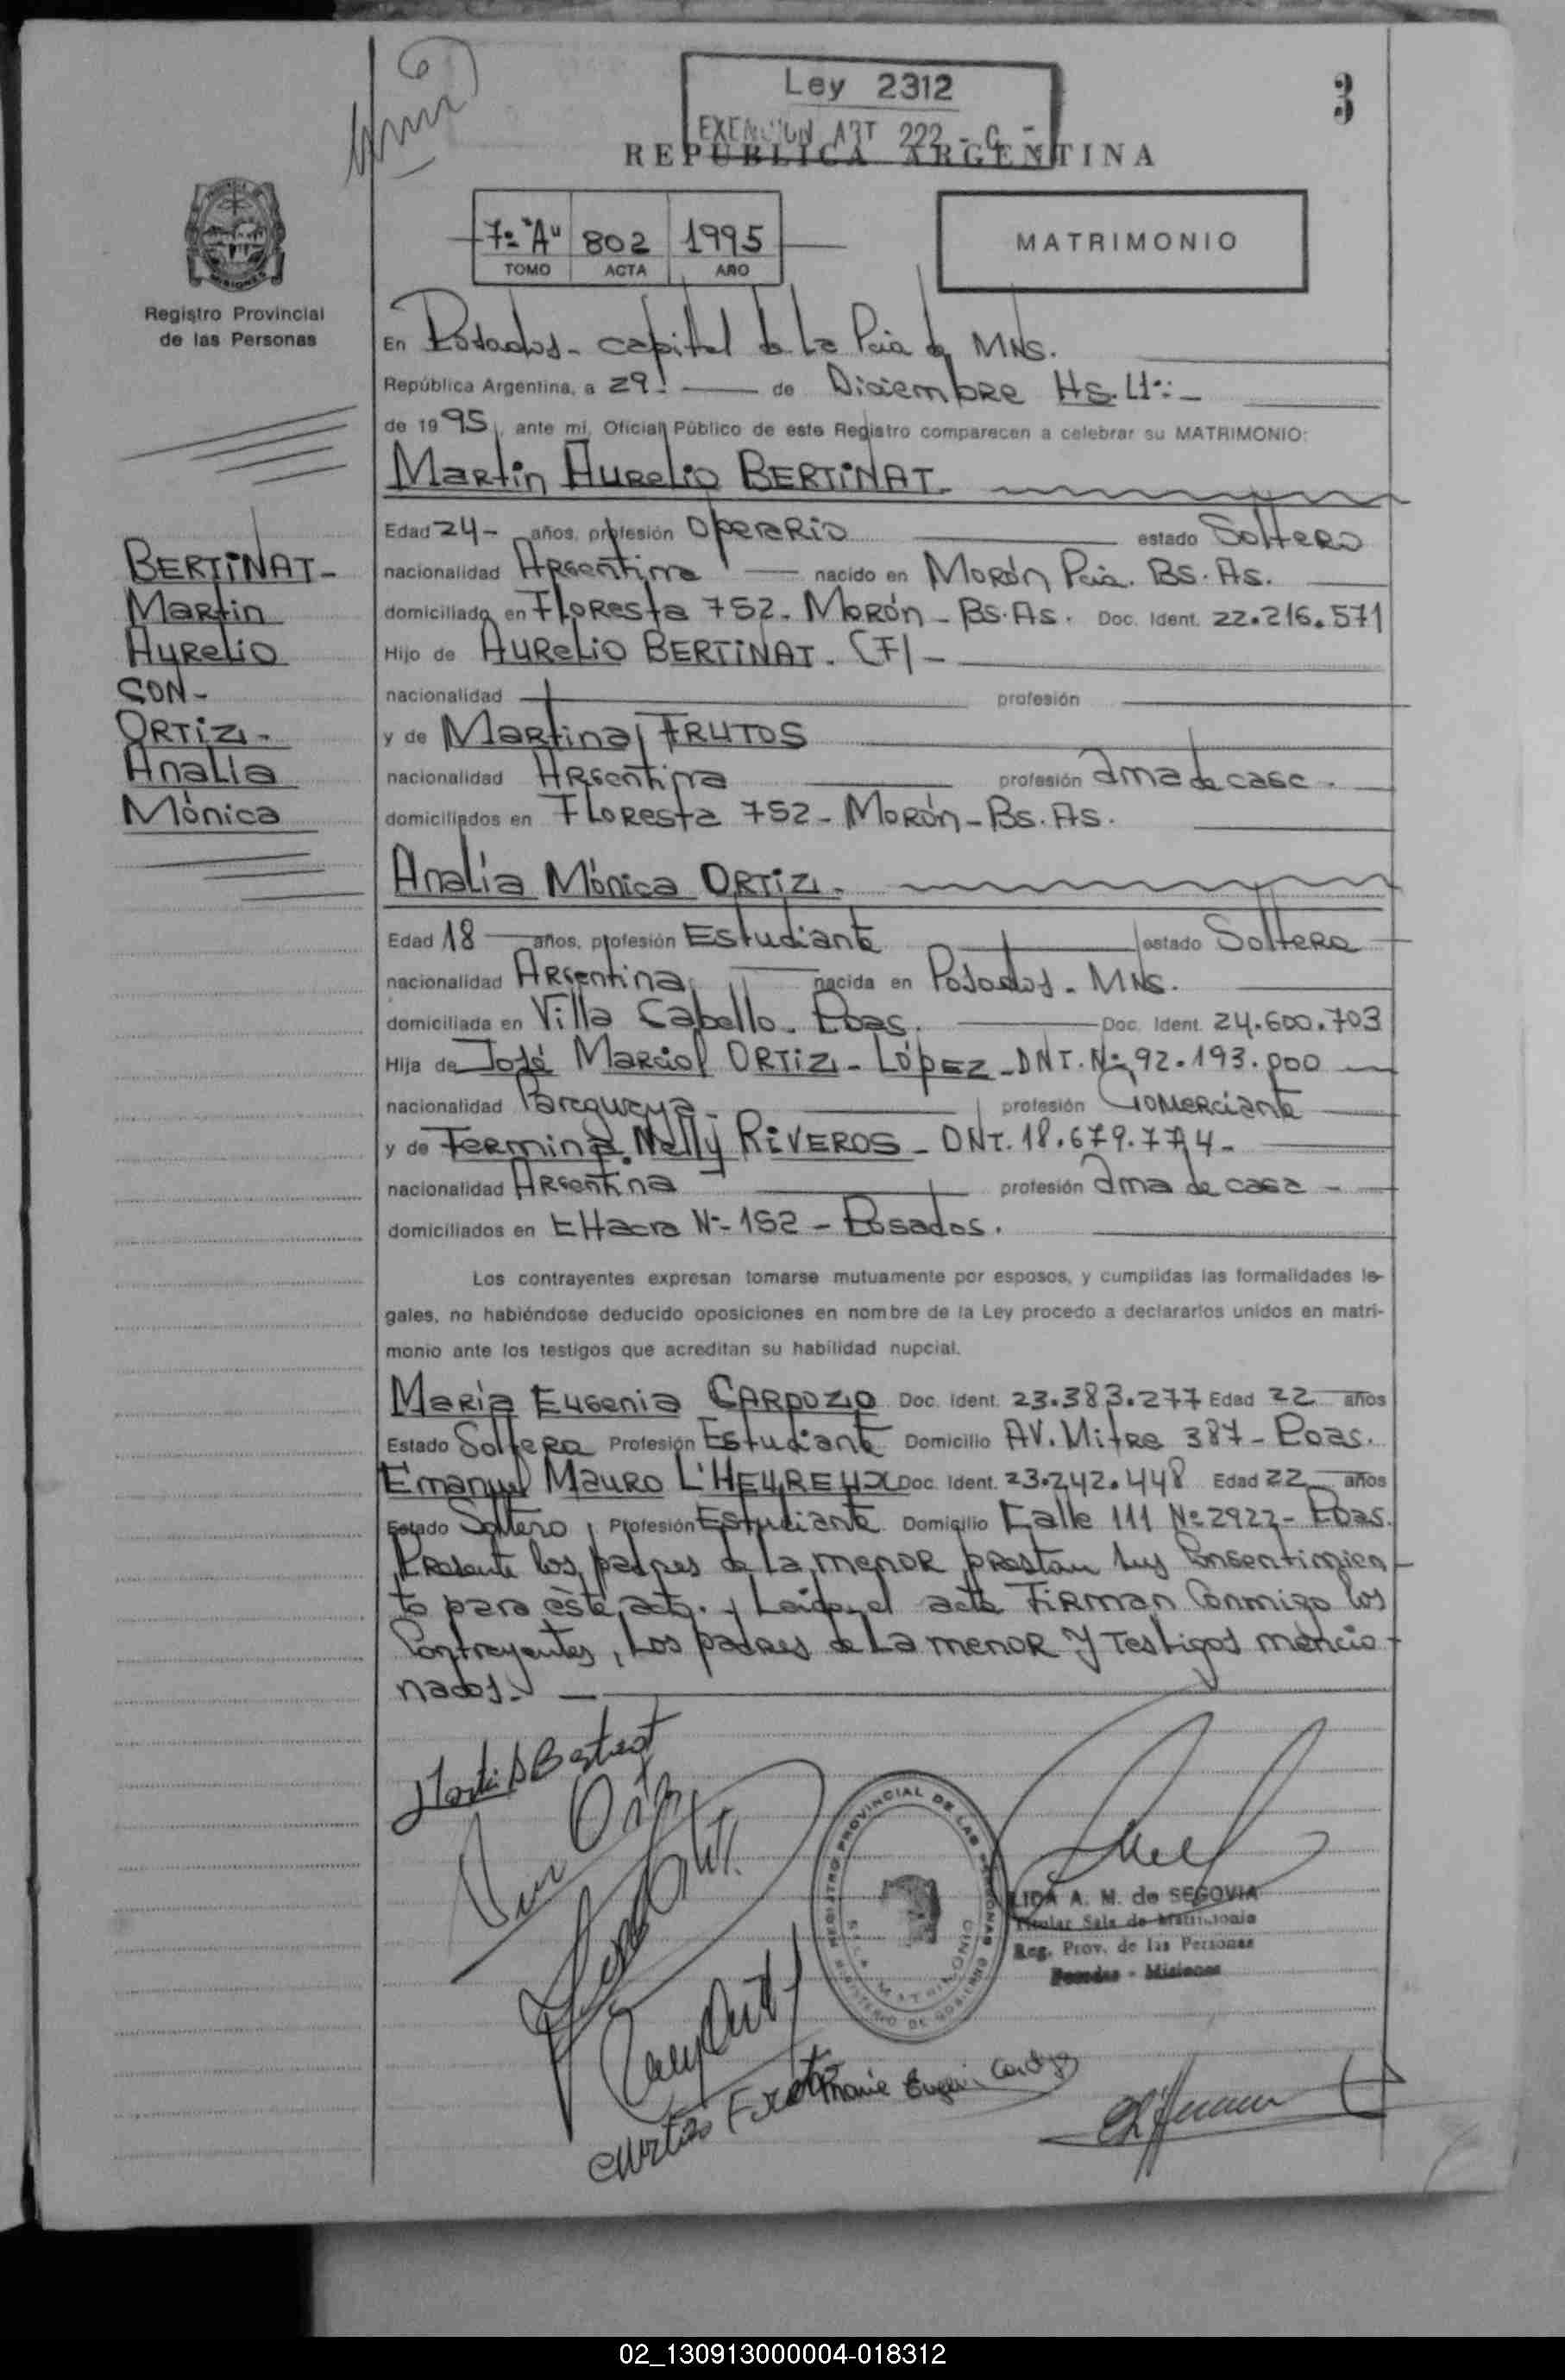 Ley 2312
EXENCION ART 222 - C -
3
REPUBLICA ARGENTINA
7º "A" 802 1995
TOMO ACTA AÑO
MATRIMONIO
MISIONES
Registro Provincial
de las Personas
En Posadas - capital de La Pcia de MNS.
República Argentina, a 29.- de Diciembre Hs. 11:-
de 1995, ante mi, Oficial Público de este Registro comparecen a celebrar su MATRIMONIO:
Martin Aurelio BERTINAT
Edad 24- años, profesión Operario estado Soltero
nacionalidad Argentina nacido en Morón Pcia. Bs. As.
domiciliado en Floresta 752 - Morón - Bs. As. Doc. Ident. 22.216.571
Hijo de Aurelio BERTINAT. (F)-
nacionalidad profesión
y de Martina FRUTOS
nacionalidad Argentina profesión ama de casa.
domiciliados en Floresta 752 - Morón - Bs. As.
BERTINAT-
Martin
Aurelio
CON-
ORTIZ-
Analia
Mónica
Analia Mónica ORTIZ.
Edad 18 años, profesión Estudiante estado Soltera
nacionalidad Argentina nacida en Posadas - MNS.
domiciliada en Villa Cabello - Pdas. Doc. Ident. 24.600.703
Hija de José Marcial ORTIZ - López - DNI. Nº 92.193.000
nacionalidad Paraguaya profesión Comerciante
y de Fermina Nelly RIVEROS - DNI. 18.679.774-
nacionalidad Argentina profesión ama de casa -
domiciliados en CHacra Nº 152 - Posadas.
Los contrayentes expresan tomarse mutuamente por esposos, y cumplidas las formalidades le-
gales, no habiéndose deducido oposiciones en nombre de la Ley procedo a declararlos unidos en matri-
monio ante los testigos que acreditan su habilidad nupcial.
María Eugenia CARDOZO Doc. Ident. 23.383.277 Edad 22 años
Estado Soltera Profesión Estudiante Domicilio AV. Mitre 387 - Pdas.
Emanuel Mauro L'HEUREUX Doc. Ident. 23.242.448 Edad 22 años
Estado Soltero Profesión Estudiante Domicilio Calle 111 Nº 2922 - Pdas.
Presente los padres de La menor prestan sus Consentimien
to para éste acto. y Leida el acta Firman Conmigo los
Contrayentes, Los padres de La menor y Testigos mencio-
nados.-
REGISTRO PROVINCIAL DE LAS PERSONAS
MINISTERIO DE GOBIERNO
SALA MATRIMONIO
LIDA A. M. de SEGOVIA
Titular Sala de Matrimonio
Reg. Prov. de las Personas
Posadas - Misiones
02_130913000004-018312